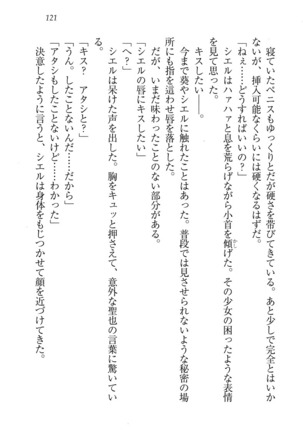 121
寝ていたペニスもゆっくりとだが硬さを帯びてきている。あと少しで完全とはいか
ないが、挿入可能なくらいには硬くなるはずだ。
「ねぇ……どうすればいいの?」
シエルはハァハァと息を荒げながら小首を傾げた。その少女の困ったような表情
を見て思った。
キスしたい――。
今まで葵やシエルに触れたことはあった。普段では見させられないような秘密の場
所にも指を這わせ唇を落とした。
だが、いまだ味わったことのない部分がある。
「シエルの唇にキスしたい」
「へ?」
シエルは呆けた声を出した。胸をキュッと押さえて、意外な聖也の言葉に驚いてい
る。
「キス? アタシと?」
「うん。したことないんだ……だから」
「アタシもしたことないけど……わかった」
決意したように言うと、シエルは身体をもじつかせて顔を近づけてきた。